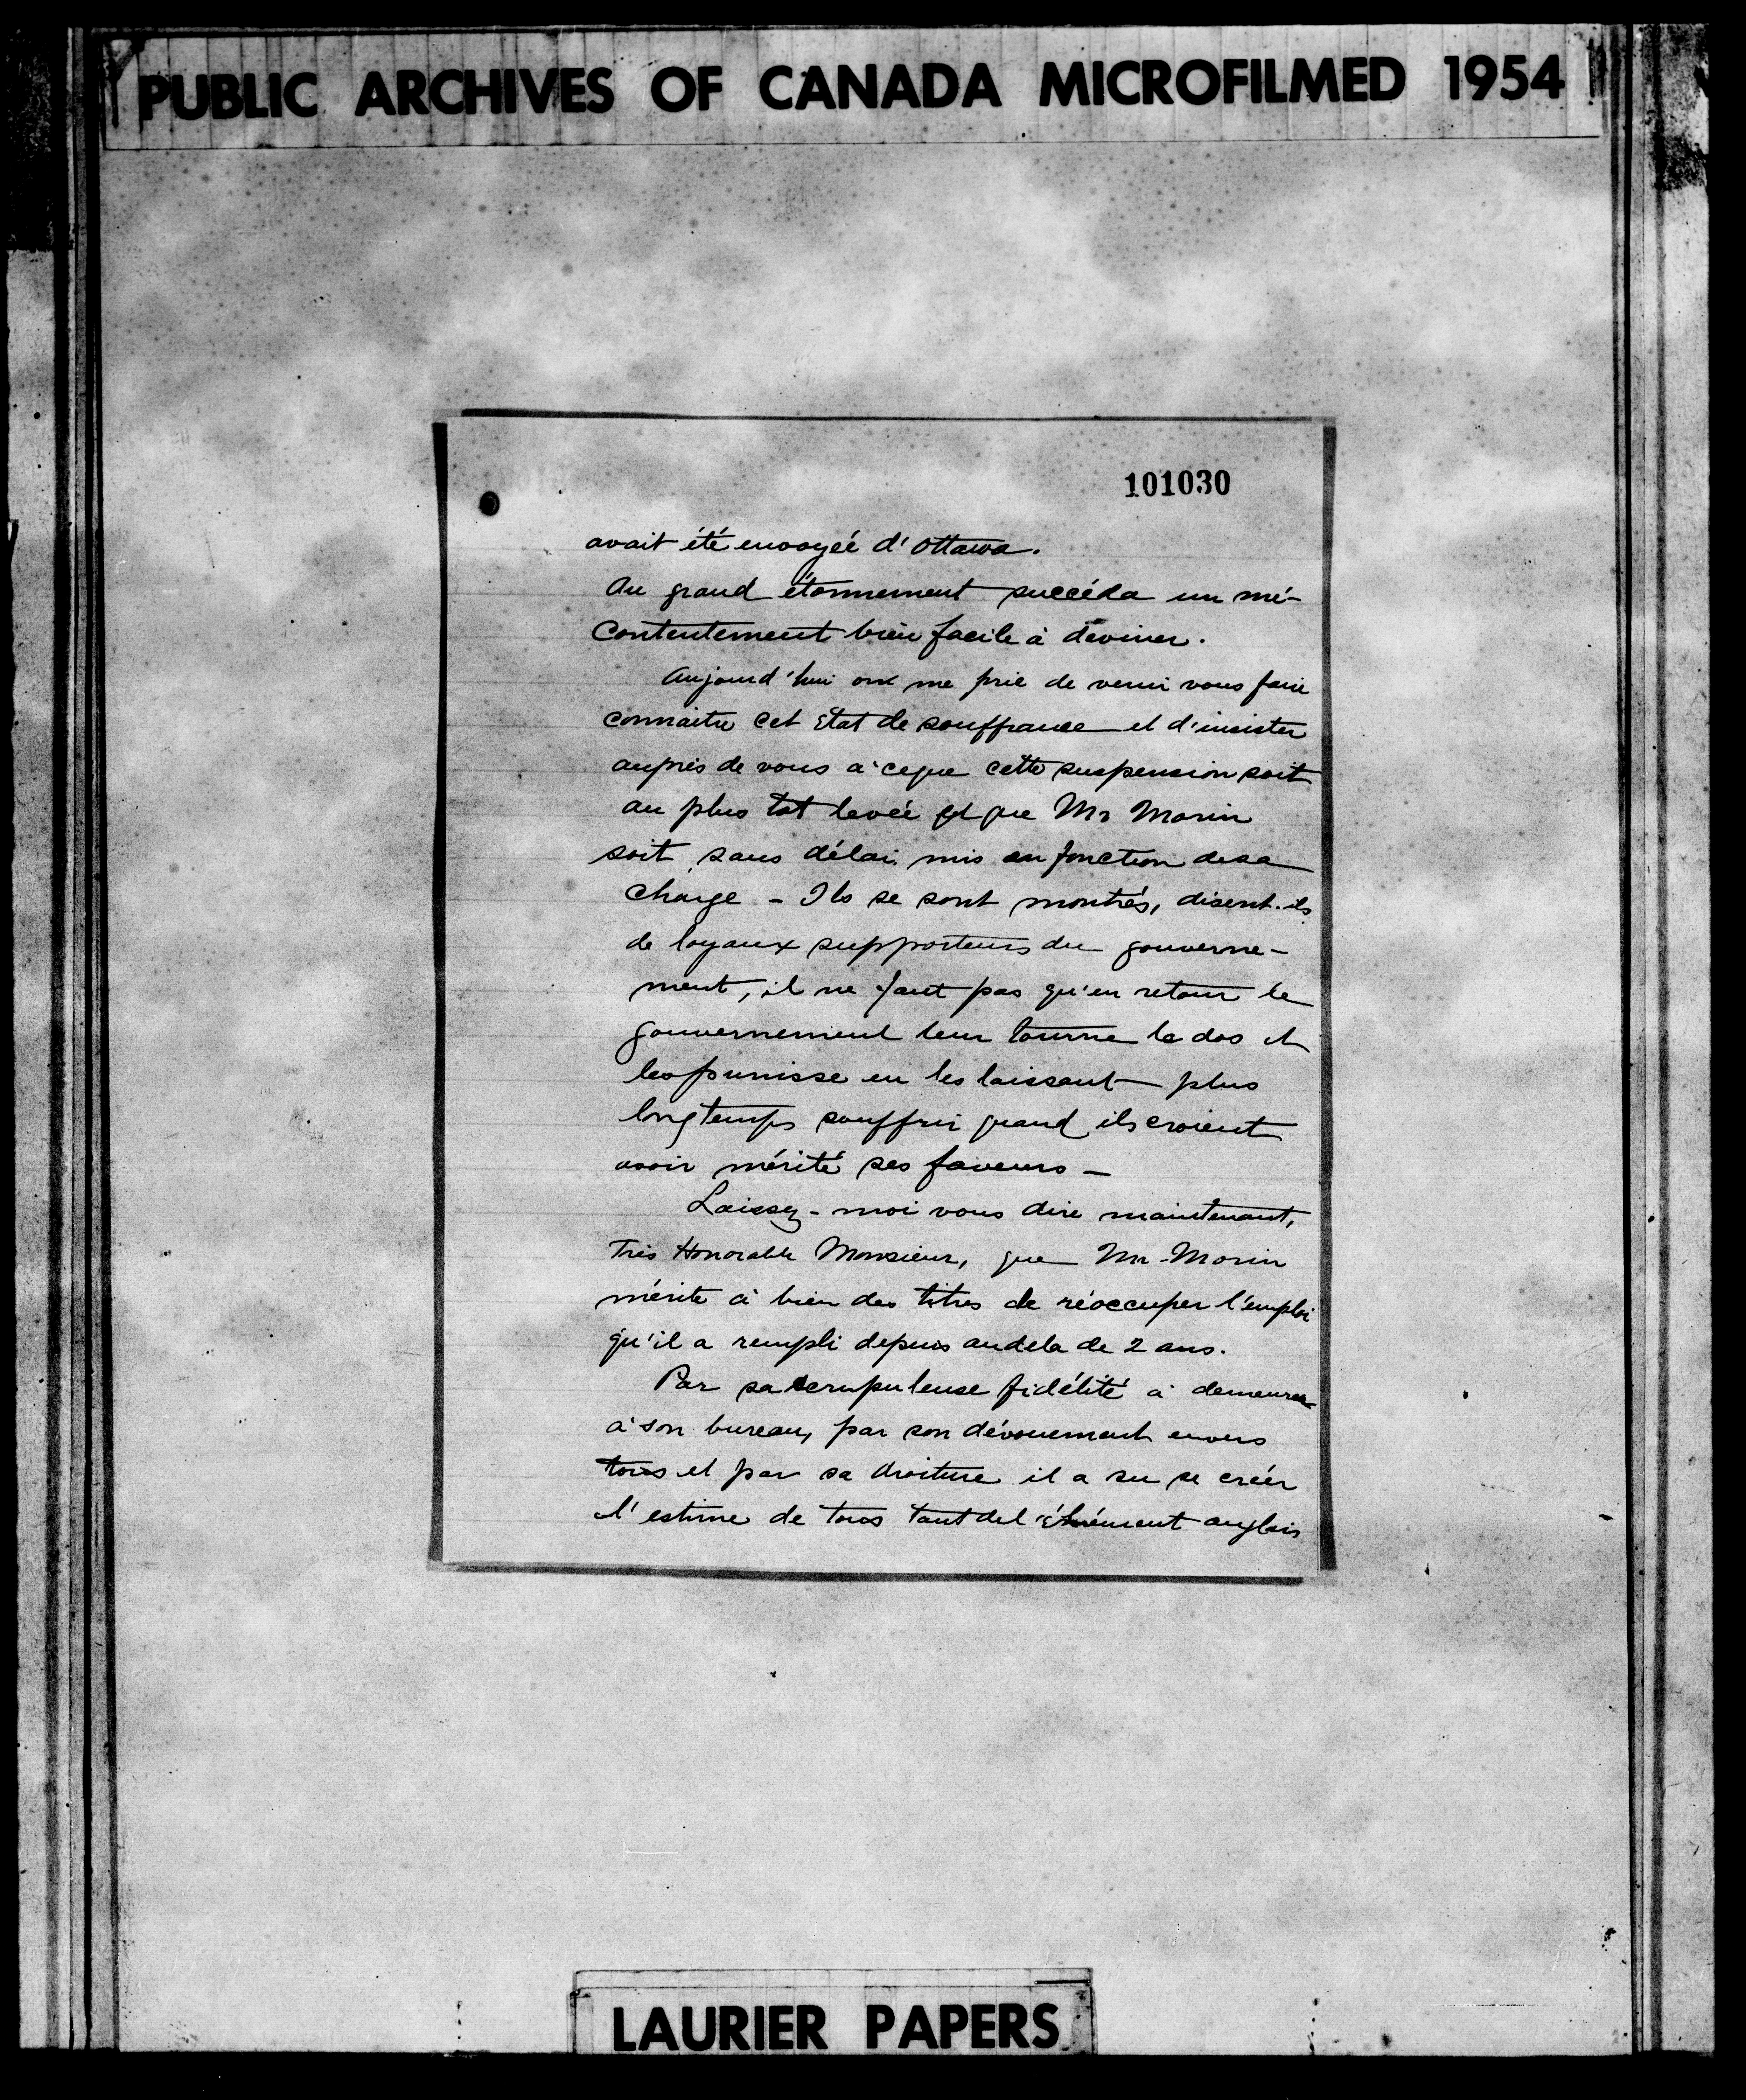 PUBLIC ARCHIVES OF CANADA MICROFILMED 1954
101030
avait été envoyée d'Ottawa.
Au grand étonnement succéda un mé-
contentement bien facile à deviner.
Aujourd'hui on me prie de venir vous faire
connaitre cet état de souffrance et d'insister
auprès de vous à ceque cette suspension soit
au plus tot levée et que Mr Morin
soit sans délai mis en fonction desa
charge - Ils se sont montrés, disent-ils
de loyaux supporteurs du gouverne-
ment, il ne faut pas qu'en retour le
gouvernement leur tourne le dos et
les punisse en les laissant plus
longtemps souffrir quand ils croient
avoir mérité ses faveurs -
Laissez-moi vous dire maintenant,
Très Honorable Monsieur, que Mr Morin
mérite à bien des titres de réoccuper l'emploi
qu'il a rempli depuis audela de 2 ans.
Par sa scrupuleuse fidélité à demeurer
à son bureau, par son dévouement envers
tous et par sa droiture il a su se créer
l'estime de tous tant del'élément anglais
LAURIER PAPERS